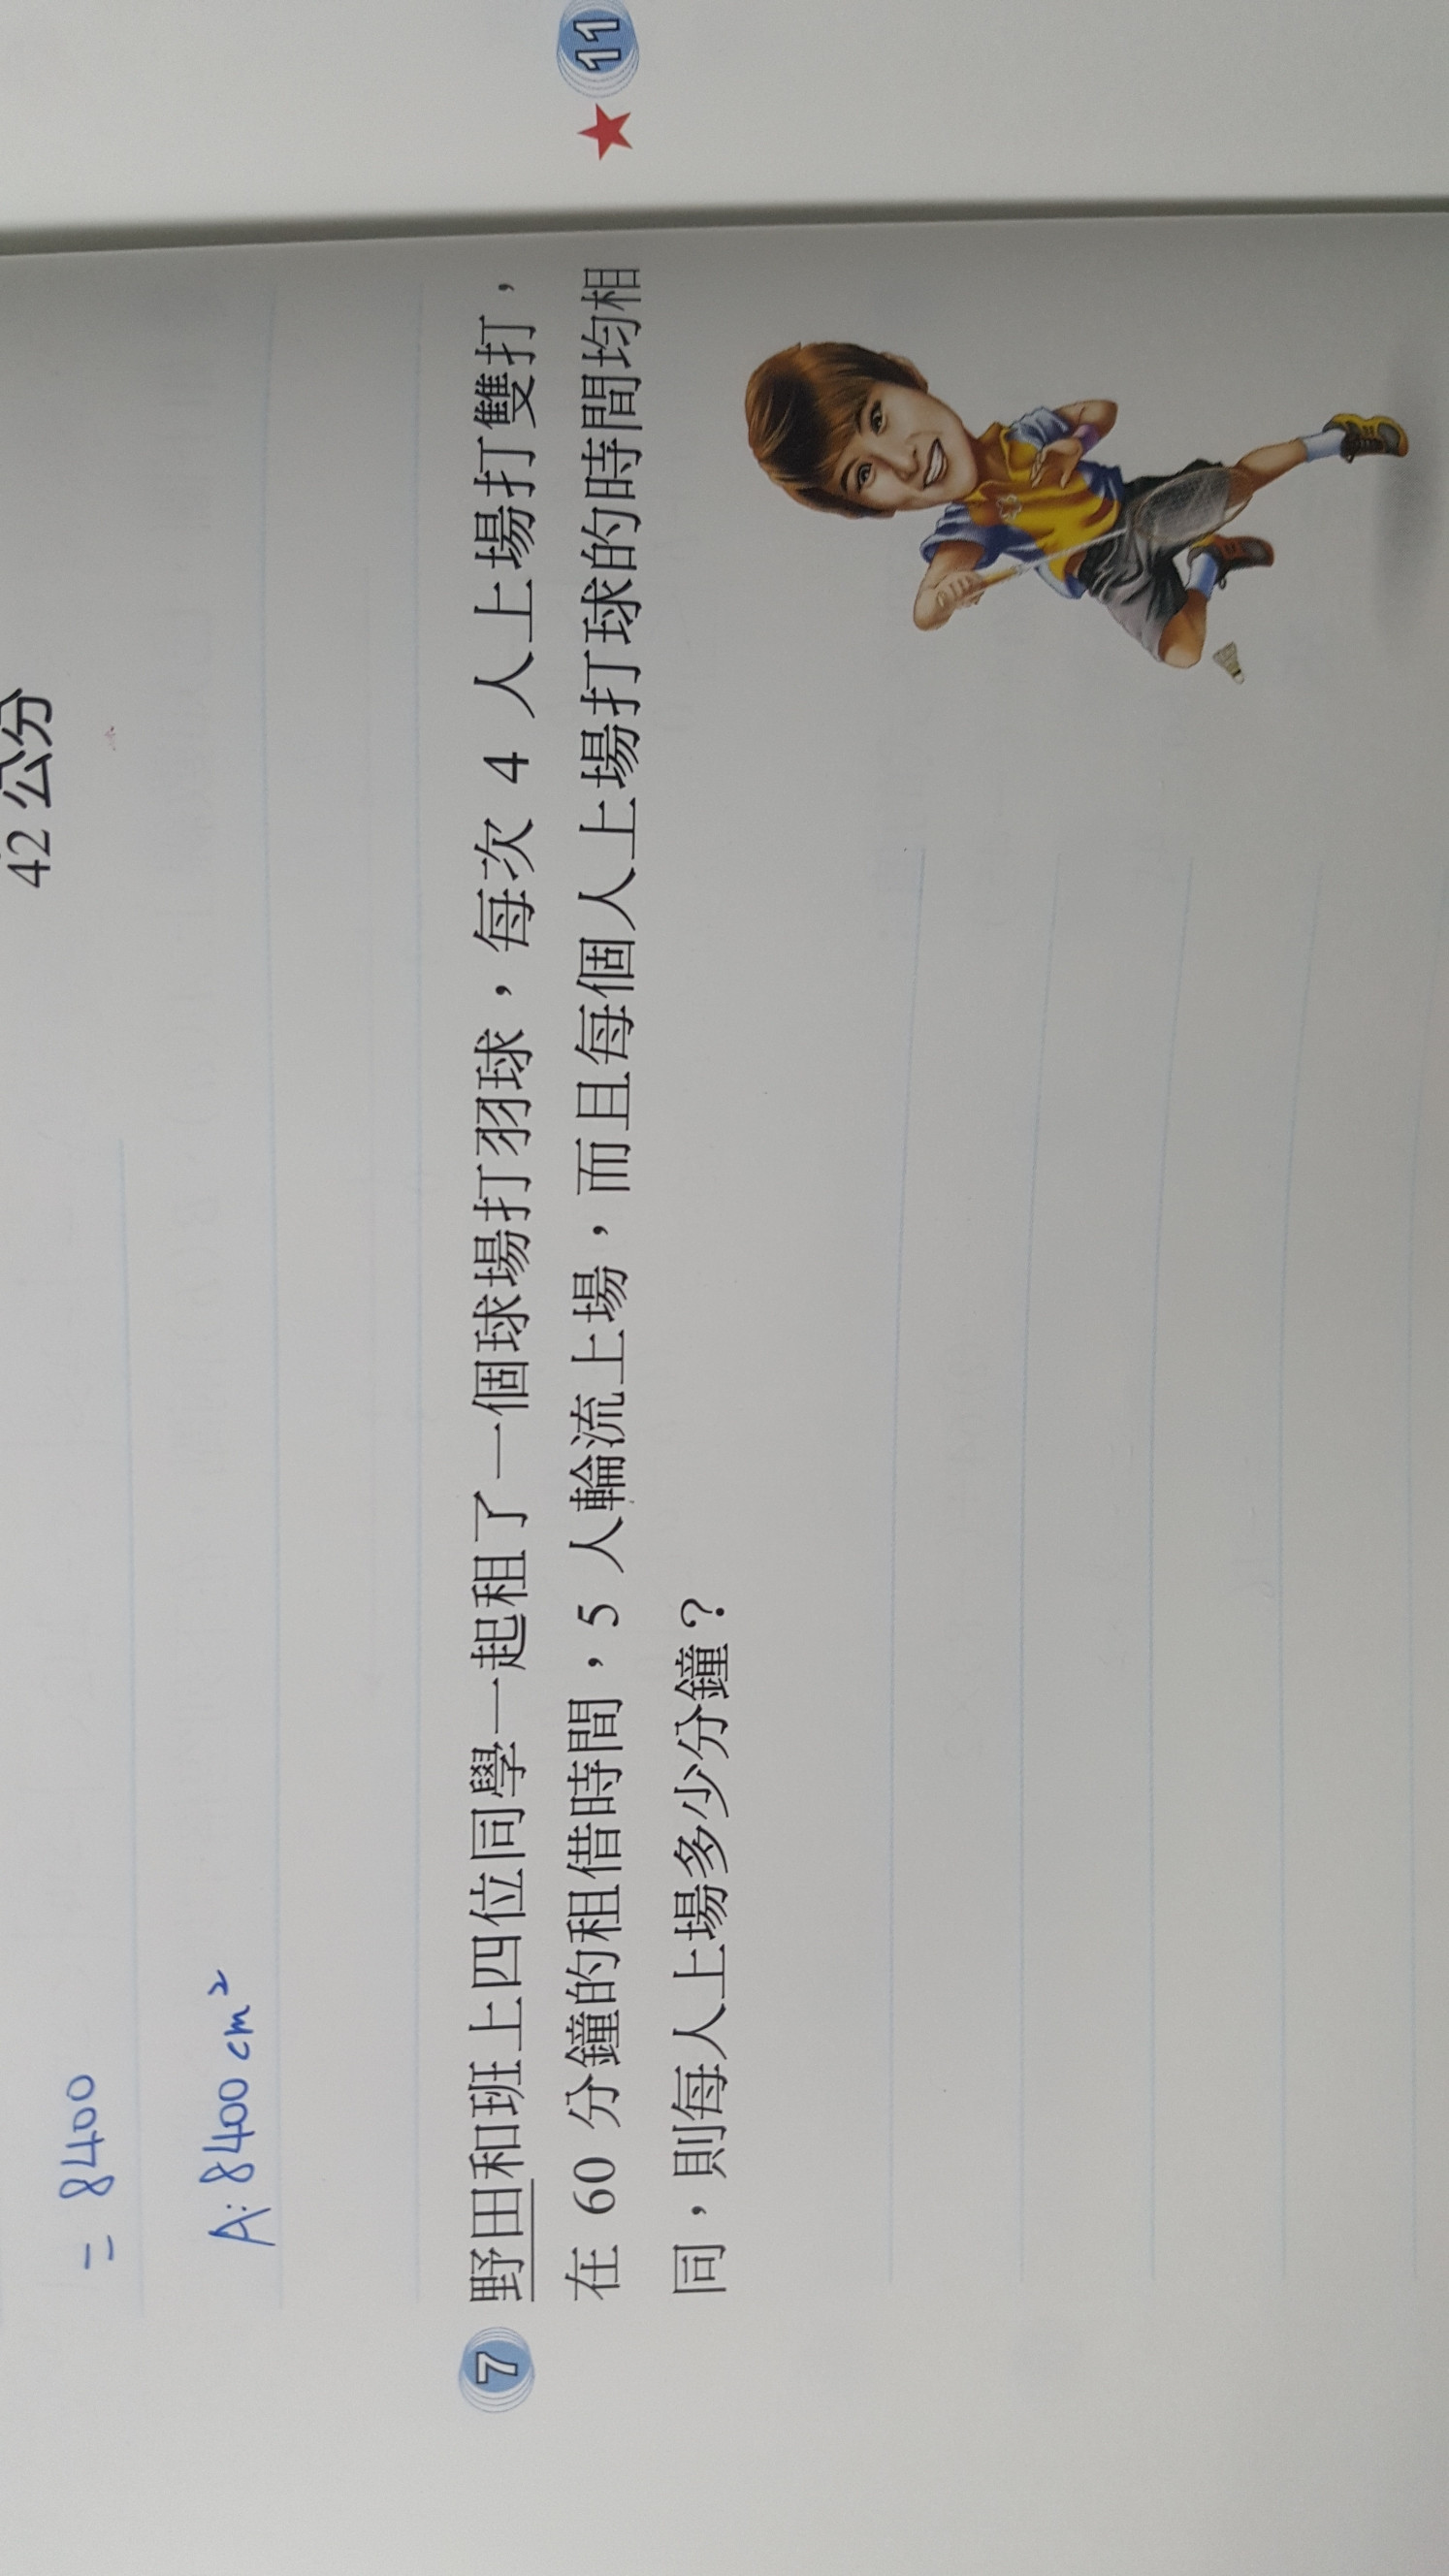 42 公分
= 8400
A: 8400 cm²
7 野田和班上四位同學一起租了一個球場打羽球，每次 4 人上場打雙打，
在 60 分鐘的租借時間，5 人輪流上場，而且每個人上場打球的時間均相
同，則每人上場多少分鐘？
★ 11